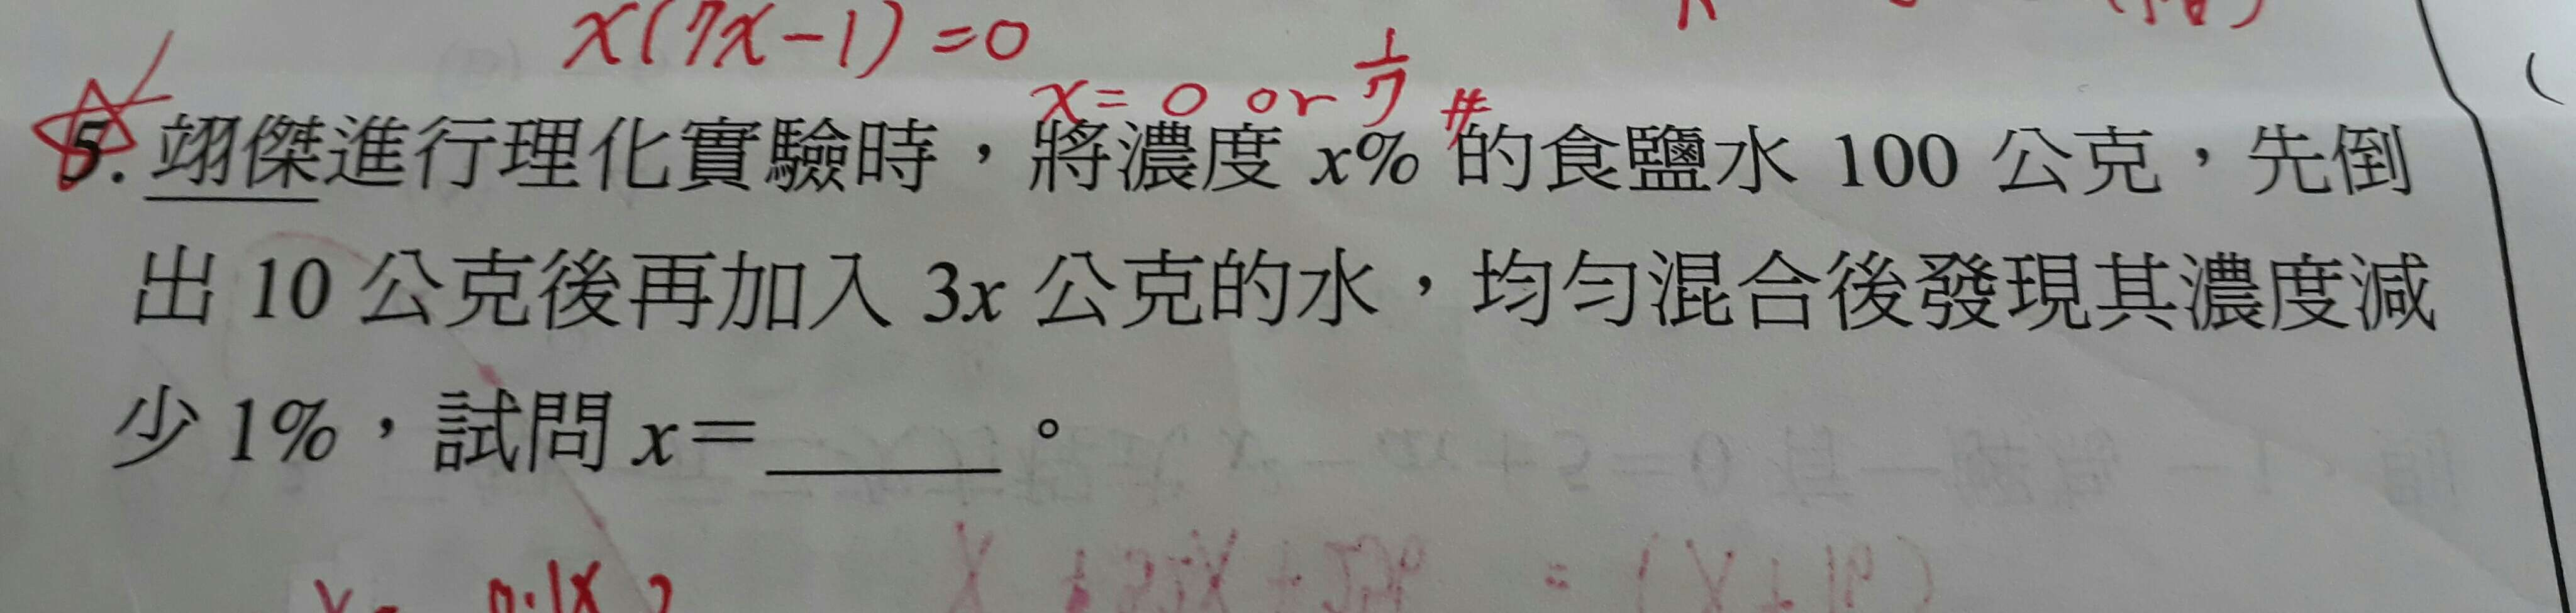 x(7x-1)=0
x=0 or 1/7 #
5. 翊傑進行理化實驗時，將濃度 x% 的食鹽水 100 公克，先倒
出 10 公克後再加入 3x 公克的水，均勻混合後發現其濃度減
少 1%，試問 x=______。